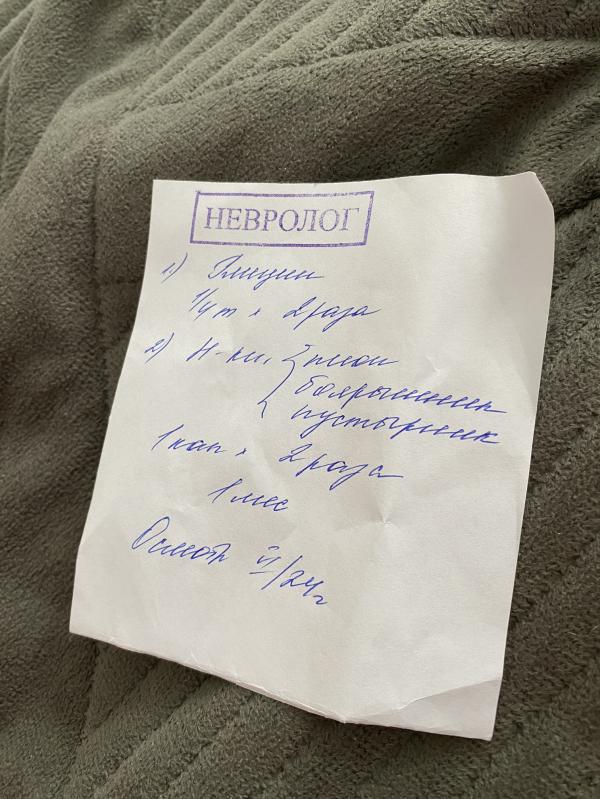 НЕВРОЛОГ
1) Глицин
1/4 т × 2 раза
2) Н-ки, { пион
боярышник
пустырник
1 кап × 2 раза
1 мес
Осмотр II/24 г